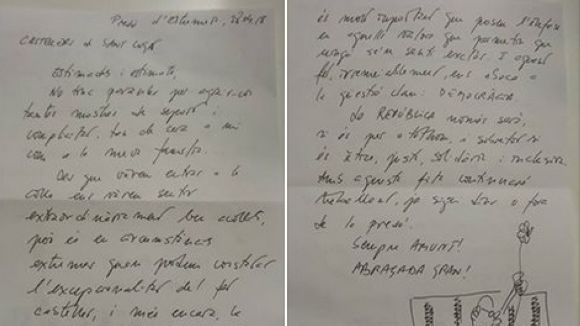 Presó d'Estremera, 23.04.18
CASTELLERS de SANT CUGAT
Estimades i estimats,
No tinc paraules per agrair-vos
tantes mostres de suport i
complicitat, tan de cara a mi
com a la meva família.
Des que vàrem entrar a la
colla ens vàrem sentir
extraordinàriament ben acollits,
però és en circumstàncies
extremes quan podem constatar
l'excepcionalitat del fet
casteller, i més encara, la
és molt important que posem l'èmfasi
en aquells valors que permetin que
ningú se'n senti exclòs. I aquest
fet, irremeiablement, ens aboca a
la qüestió clau: DEMOCRÀCIA.
La REPÚBLICA només serà,
si és per a tothom, i sobretot si
és lliure, justa, solidària i inclusiva.
Amb aquesta fita continuaré
treballant, ja sigui dins o fora
de la presó.
Sempre AMUNT!
ABRAÇADA GRAN!